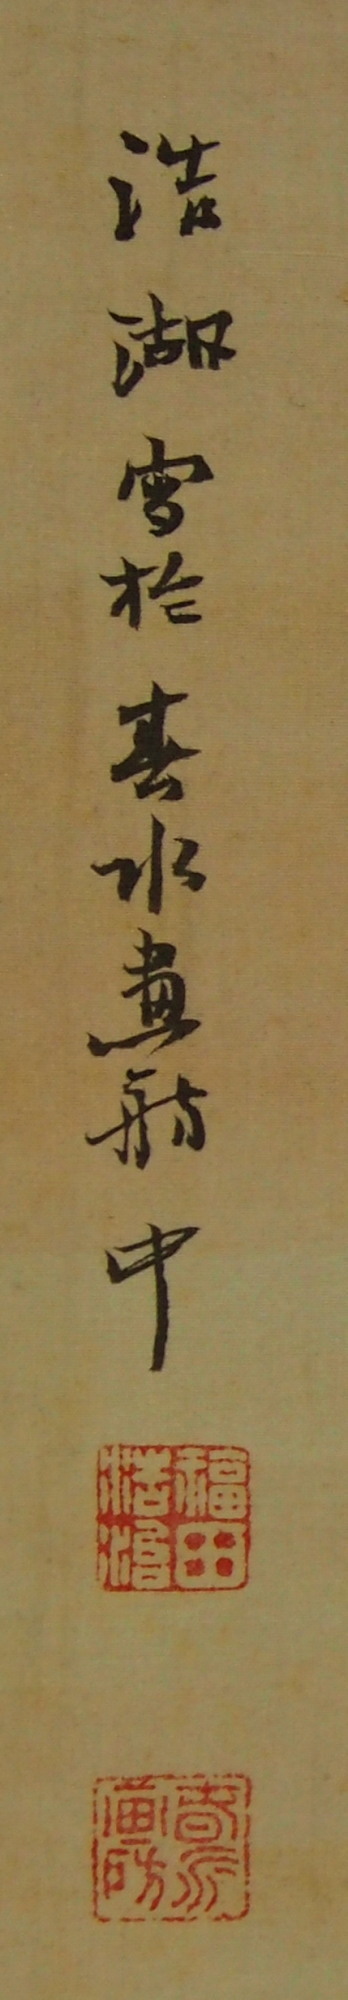 浩湖寫於春水畫舫中
福田
浩湖
春水
画舫